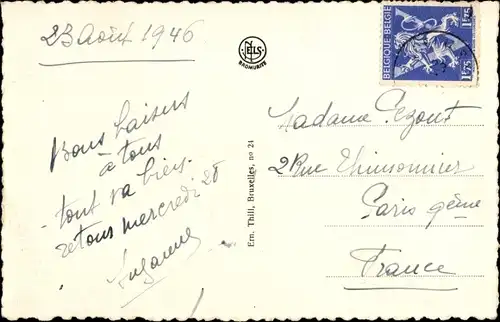 23 Août 1946
NELS
BROMURITE
BELGIQUE-BELGIË
1F75
1F75
Bons baisers
à tous
tout va bien
retous mercredi 28
Suzanne
Ern. Thill, Bruxelles, no 24
Madame Pezout
2 Rue Thimonnier
Paris 9ème
France